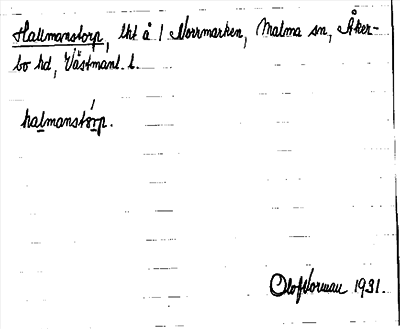 Hallmanstorp, lht å l Norrmarken, Malma sn, Åker-
bo hd, Västmanl. l.
halmanstórp.
Olof Norman 1931.